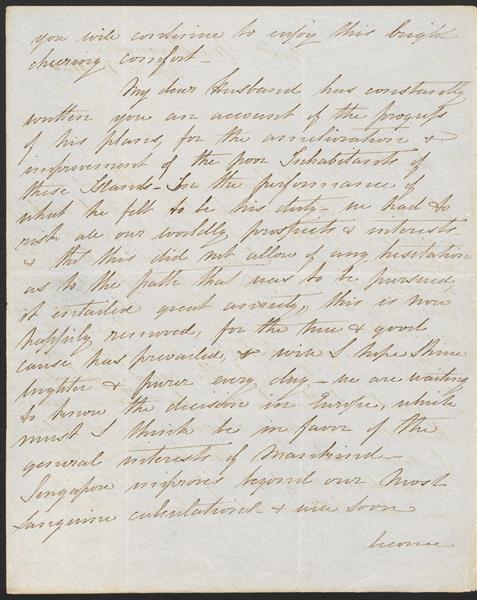 you will continue to enjoy this bright
cheering comfort –
My dear Husband has constantly
written you an account of the progress
of his plans, for the amelioration &
improvement of the poor Inhabitants of
these Islands – In the performance of
what he felt to be his duty – we had to
risk all our worldly prospects & interests
& tho' this did not allow of any hesitation
as to the path that was to be pursued
it entailed great anxiety, this is now
happily removed, for the true & good
cause has prevailed, & will I hope Shine
brighter & purer every day – we are waiting
to know the decision in Europe, which
must I think be in favor of the
general interests of Mankind –
Singapore improves beyond our most
sanguine calculations & will soon
become